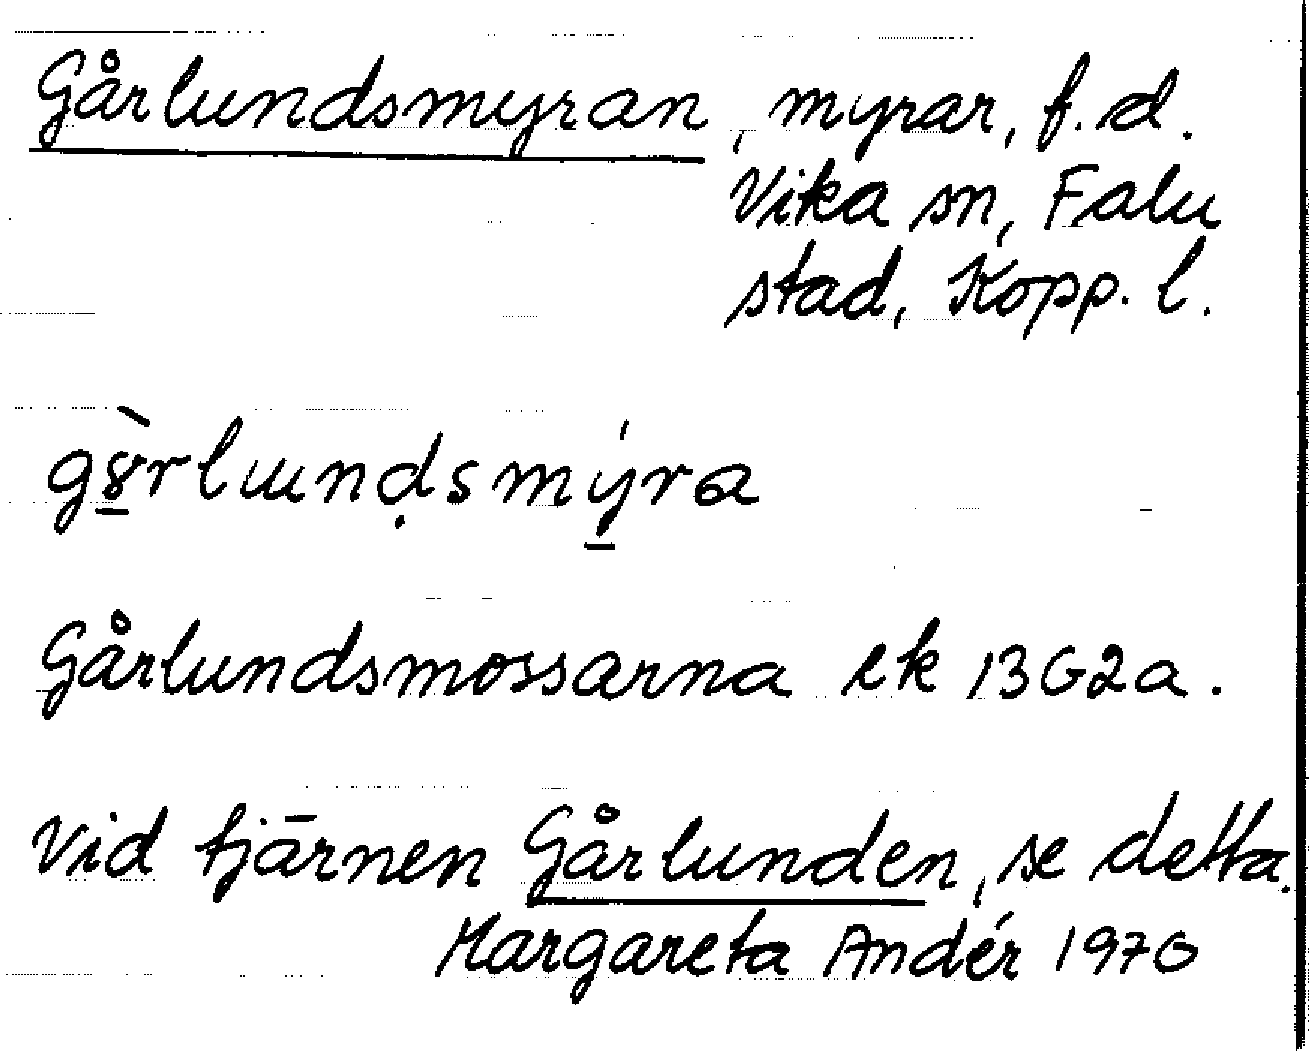 Gårlundsmyran, myrar, f.d.
Vika sn, Falu
stad, Kopp. l.
g8̲̀rlɯnḍsmý̲ra
Gårlundsmossarna ek 13G2a.
Vid tjärnen Gårlunden, se detta.
Margareta Andér 1970